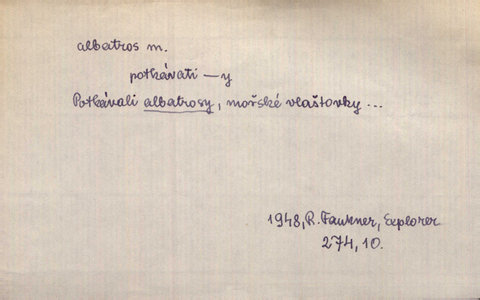 albatros m.
potkávati —y
Potkávali albatrosy, mořské vlaštovky ...
1948, R. Faukner, Explorer
274, 10.